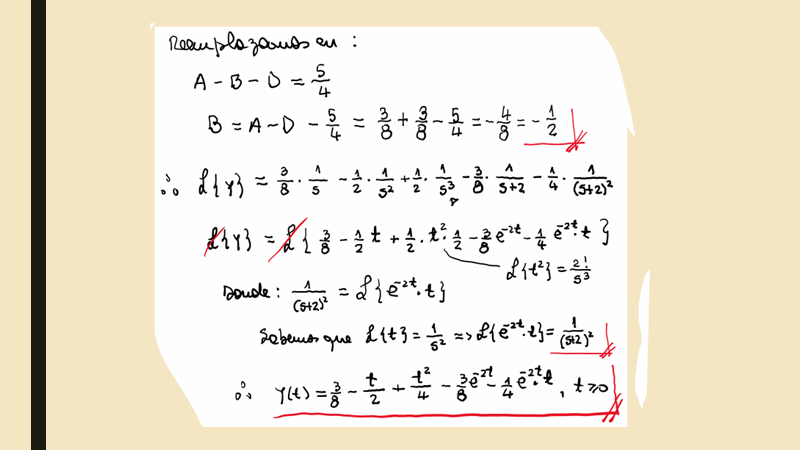 Reemplazamos en :
A - B - D = 5/4
B = A - D - 5/4 = 3/8 + 3/8 - 5/4 = - 4/8 = - 1/2
∴ ℒ{Y} = 3/8 · 1/s - 1/2 · 1/s² + 1/2 · 1/s³ - 3/8 · 1/s+2 - 1/4 · 1/(s+2)²
ℒ{Y} = ℒ{ 3/8 - 1/2 t + 1/2 · t² · 1/2 - 3/8 e^-2t - 1/4 e^-2t · t }
ℒ{t²} = 2!/s³
Donde : 1/(s+2)² = ℒ{e^-2t · t}
Sabemos que ℒ{t} = 1/s² => ℒ{e^-2t · t} = 1/(s+2)²
∴ Y(t) = 3/8 - t/2 + t²/4 - 3/8 e^-2t - 1/4 e^-2t · t , t ≥ 0